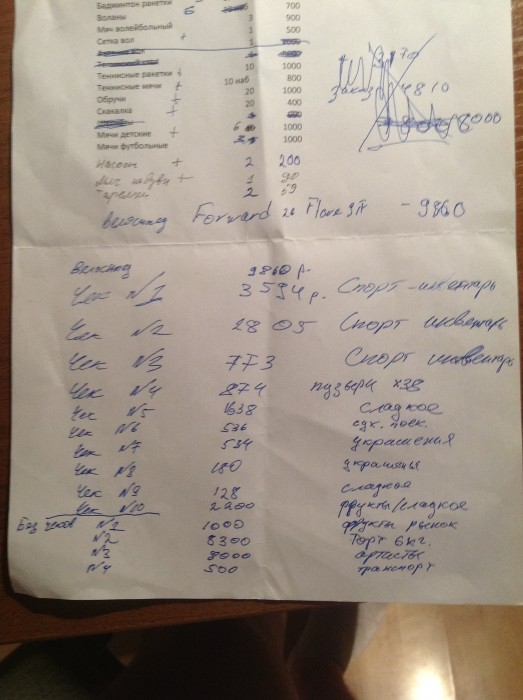 Бадминтон ракетки 6 700
Воланы 3 900
Мяч волейбольный 1 500
Сетка вол + 1
Теннисные ракетки + 10 1000
Теннисные мячи + 10 наб 800
Обручи + 20 1000
Скакалка + 20 400
Мячи детские + 6 1000
Мячи футбольные 1000
Насосы + 2 200
+ 1 90
2
заказ 4810
8000
Велосипед Forward - 9860
Велосипед 9860 р.
Чек №1 3594 р. Спорт-инвентарь
Чек №2 2805 Спорт инвентарь
Чек №3 773 Спорт инвентарь
Чек №4 874 пузыри х38
Чек №5 1638 сладкое
Чек №6 536 сух. поек.
Чек №7 534 украшения
Чек №8 180 украшенья
Чек №9 128 сладкое
Чек №10 2200 фрукты/сладкое
Без чеков №1 1000 фрукты рынок
№2 8300 Торт 6кг.
№3 8000 артисты
№4 500 транспорт